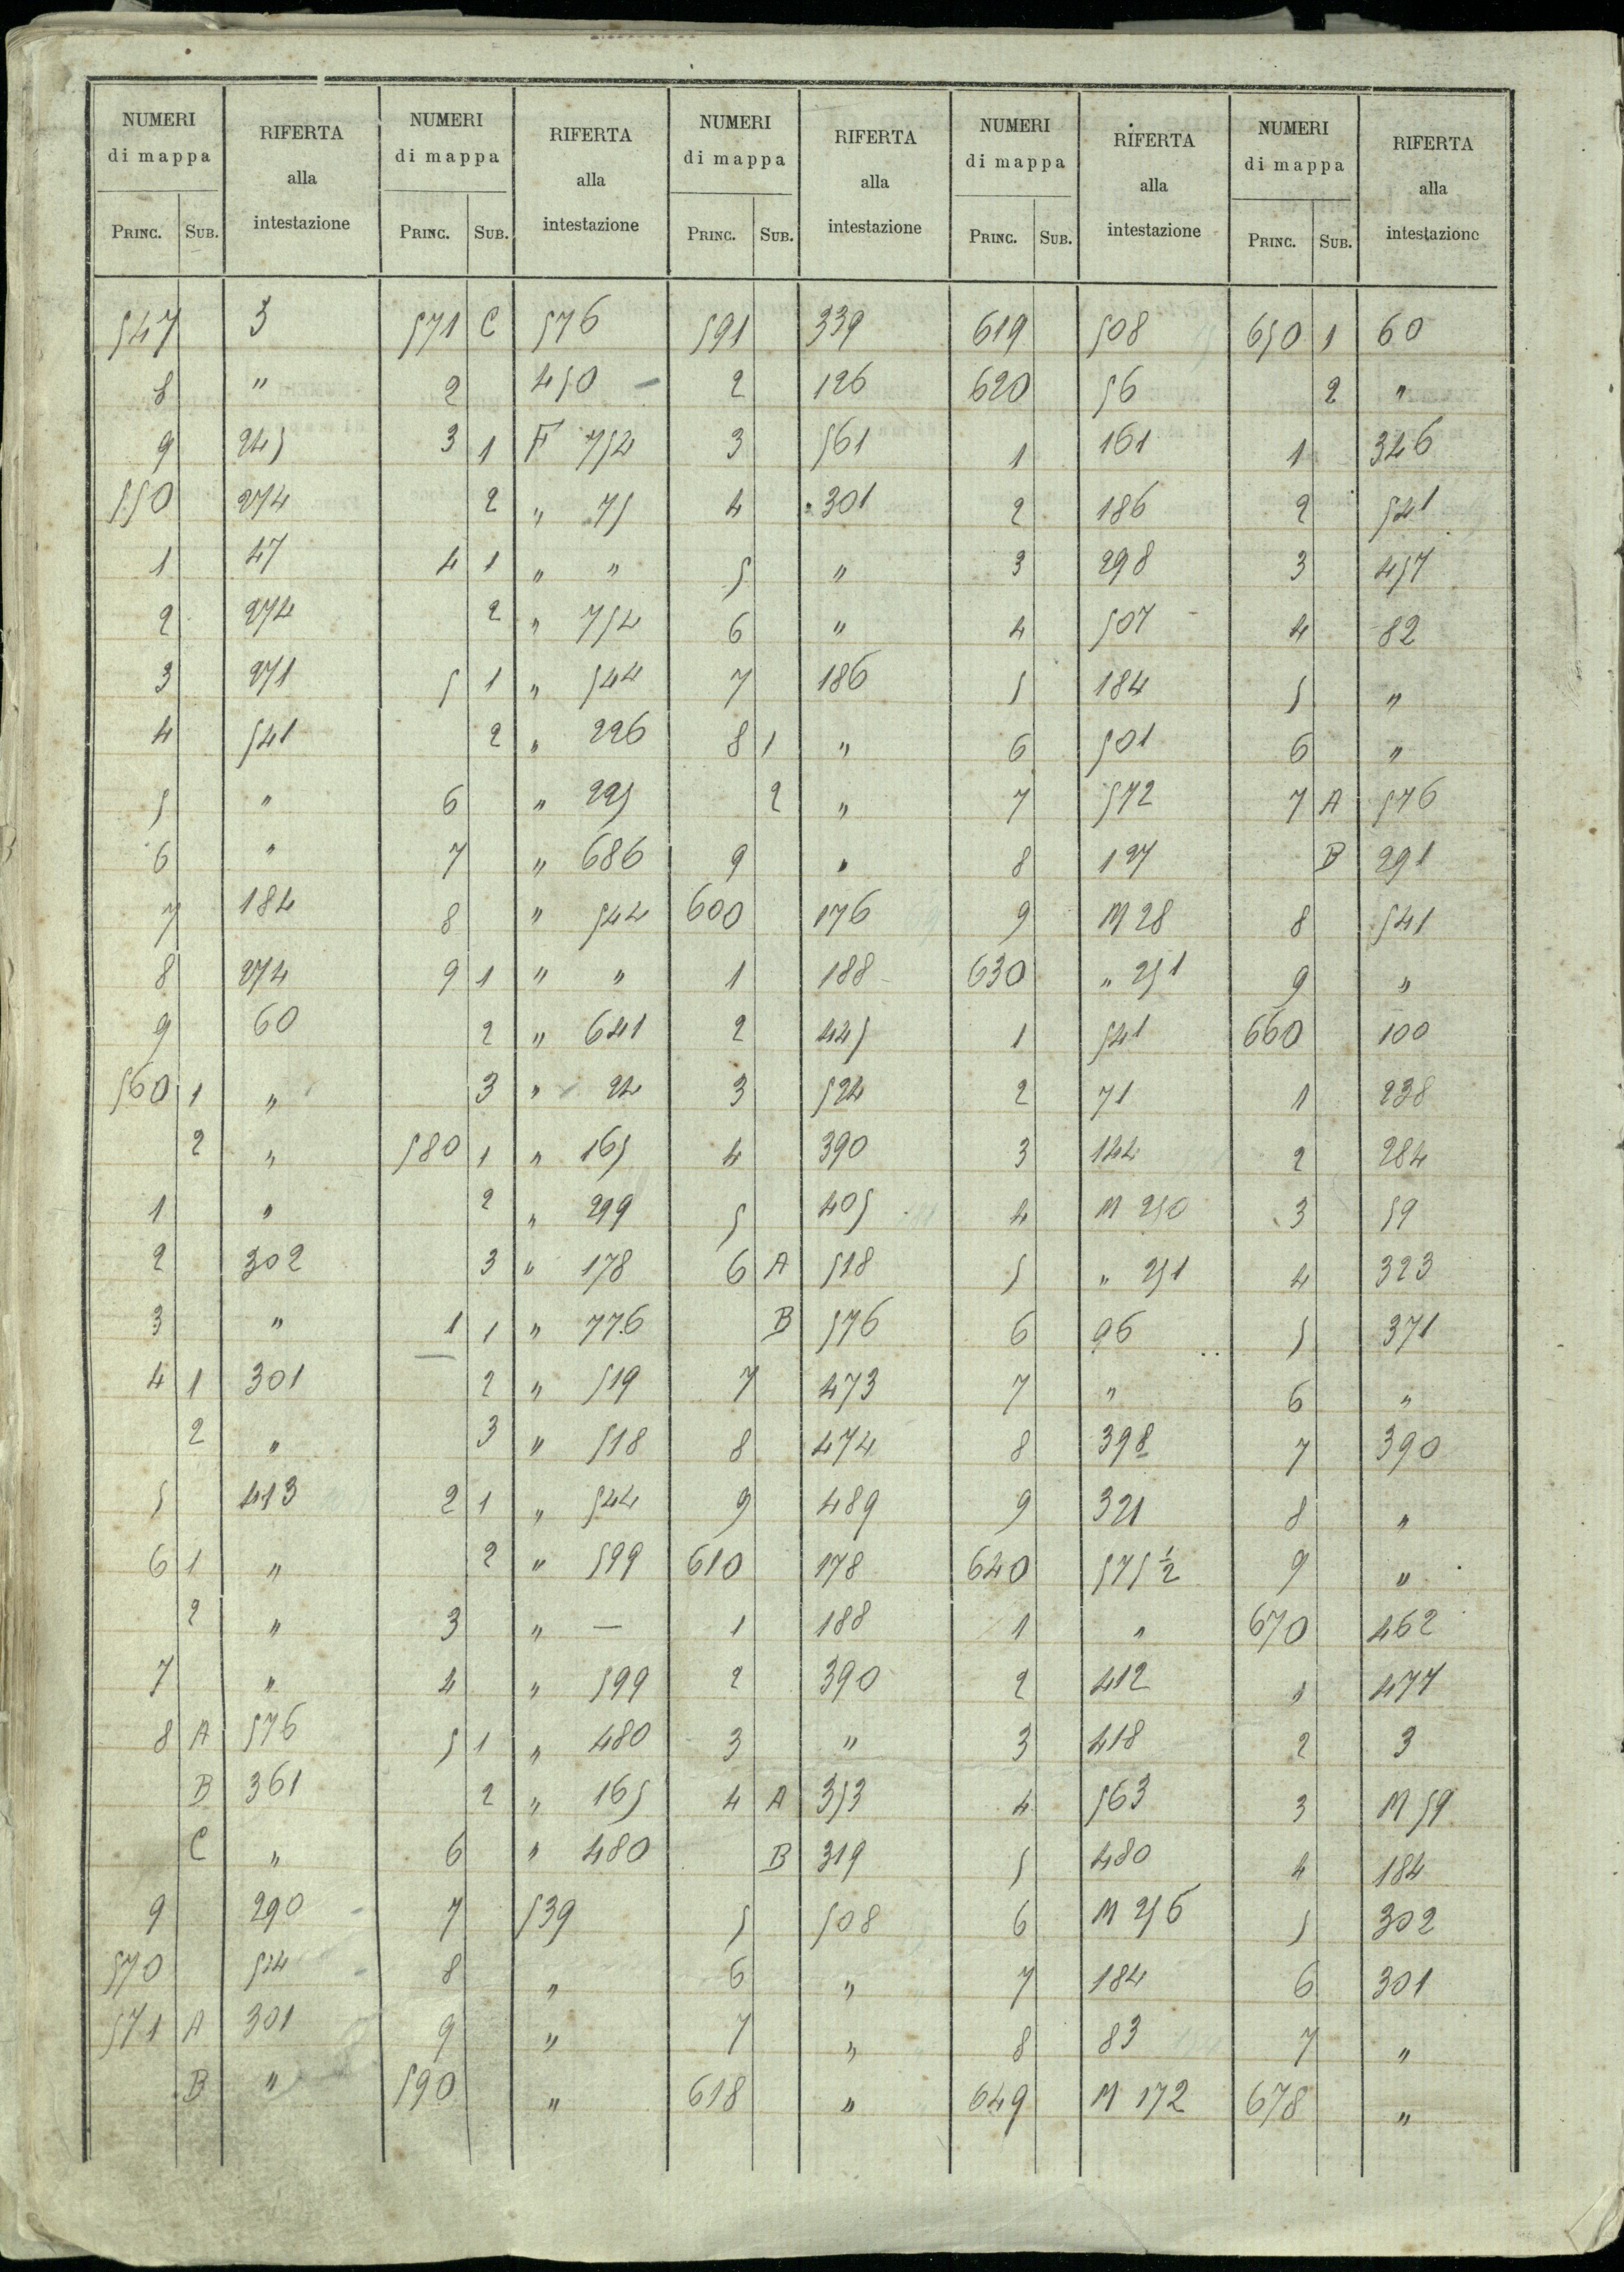 NUMERI di mappa | RIFERTA alla intestazione | NUMERI di mappa | RIFERTA alla intestazione | NUMERI di mappa | RIFERTA alla intestazione | NUMERI di mappa | RIFERTA alla intestazione | NUMERI di mappa | RIFERTA alla intestazione
PRINC. | SUB. | PRINC. | SUB. | PRINC. | SUB. | PRINC. | SUB. | PRINC. | SUB.
547 | | 3 | 571 | C | 576 | 591 | | 339 | 619 | | 508 | 650 | 1 | 60
8 | | " | 2 | | 450 | 2 | | 126 | 620 | | 56 | | 2 | "
9 | | 245 | 3 | 1 | F 754 | 3 | | 561 | 1 | | 161 | 1 | | 346
550 | | 274 | | 2 | " 75 | 4 | | 301 | 2 | | 186 | 2 | | 541
1 | | 47 | 4 | 1 | " " | 5 | | " | 3 | | 298 | 3 | | 457
2 | | 274 | | 2 | " 754 | 6 | | " | 4 | | 507 | 4 | | 82
3 | | 271 | 5 | 1 | " 544 | 7 | | 186 | 5 | | 184 | 5 | | "
4 | | 541 | | 2 | " 226 | 8 | 1 | " | 6 | | 501 | 6 | | "
5 | | " | 6 | | " 225 | | 2 | " | 7 | | 572 | 7 | A | 576
6 | | " | 7 | | " 686 | 9 | | " | 8 | | 127 | | B | 291
7 | | 184 | 8 | | " 544 | 600 | | 176 | 9 | | M 28 | 8 | | 541
8 | | 274 | 9 | 1 | " " | 1 | | 188 | 630 | | " 251 | 9 | | "
9 | | 60 | | 2 | " 641 | 2 | | 445 | 1 | | 541 | 660 | | 100
560 | 1 | " | | 3 | " 24 | 3 | | 524 | 2 | | 71 | 1 | | 238
| 2 | " | 580 | 1 | " 165 | 4 | | 390 | 3 | | 144 | 2 | | 284
1 | | " | | 2 | " 299 | 5 | | 405 | 4 | | M 250 | 3 | | 59
2 | | 302 | | 3 | " 178 | 6 | A | 518 | 5 | | " 251 | 4 | | 323
3 | | " | 1 | 1 | " 776 | | B | 576 | 6 | | 96 | 5 | | 371
4 | 1 | 301 | | 2 | " 519 | 7 | | 473 | 7 | | " | 6 | | "
| 2 | " | | 3 | " 518 | 8 | | 474 | 8 | | 398 | 7 | | 390
5 | | 413 | 2 | 1 | " 544 | 9 | | 489 | 9 | | 321 | 8 | | "
6 | 1 | " | | 2 | " 599 | 610 | | 178 | 640 | | 575 ½ | 9 | | "
| 2 | " | 3 | | " — | 1 | | 188 | 1 | | " | 670 | | 462
7 | | " | 4 | | " 599 | 2 | | 390 | 2 | | 412 | 1 | | 477
8 | A | 576 | 5 | 1 | " 480 | 3 | | " | 3 | | 418 | 2 | | 3
| B | 361 | | 2 | " 165 | 4 | A | 353 | 4 | | 563 | 3 | | M 59
| C | " | 6 | | " 480 | | B | 319 | 5 | | 480 | 4 | | 184
9 | | 290 | 7 | | 539 | 5 | | 508 | 6 | | M 256 | 5 | | 302
570 | | 544 | 8 | | " | 6 | | " | 7 | | 184 | 6 | | 301
571 | A | 301 | 9 | | " | 7 | | " | 8 | | 83 | 7 | | "
| B | " | 590 | | " | 618 | | " | 649 | | M 172 | 678 | | "